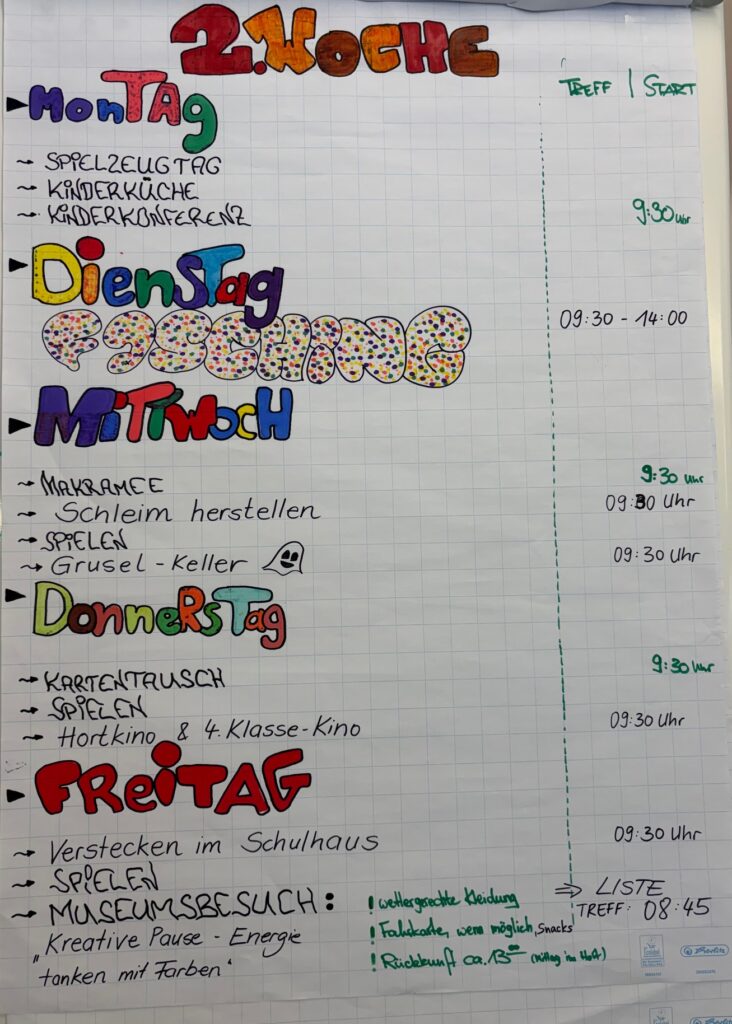 2. WOCHE
TREFF | START
MONTAG
→ SPIELZEUGTAG
→ KINDERKÜCHE
→ KINDERKONFERENZ 9:30 Uhr
DIENSTAG
FASCHING 09:30 - 14:00
MITTWOCH
→ MAKRAMEE 9:30 Uhr
→ Schleim herstellen 09:30 Uhr
→ SPIELEN
→ Grusel-Keller 09:30 Uhr
DONNERSTAG
→ KARTENTAUSCH 9:30 Uhr
→ SPIELEN
→ Hortkino & 4. Klasse-Kino 09:30 Uhr
FREITAG
→ Verstecken im Schulhaus 09:30 Uhr
→ SPIELEN
→ MUSEUMSBESUCH: ⇒ LISTE
TREFF: 08:45
„Kreative Pause - Energie
tanken mit Farben"
! wettergerechte Kleidung
! Fahrkarte, wenn möglich, Snacks
! Rückkunft ca. 13⁰⁰ (Mittag im Hort)
Berlitz